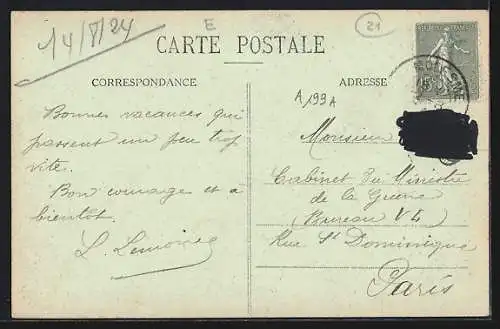 14/8/24
E
21
CARTE POSTALE
CORRESPONDANCE
ADRESSE
A 199A
REPUBLIQUE FRANÇAISE
15
Bonnes vacances qui
passent un peu trop
vite.
Bon courage et à
bientôt.
L. Lemoine
Monsieur
Cabinet du Ministre
de la Guerre
(Bureau
Rue St Dominique
Paris